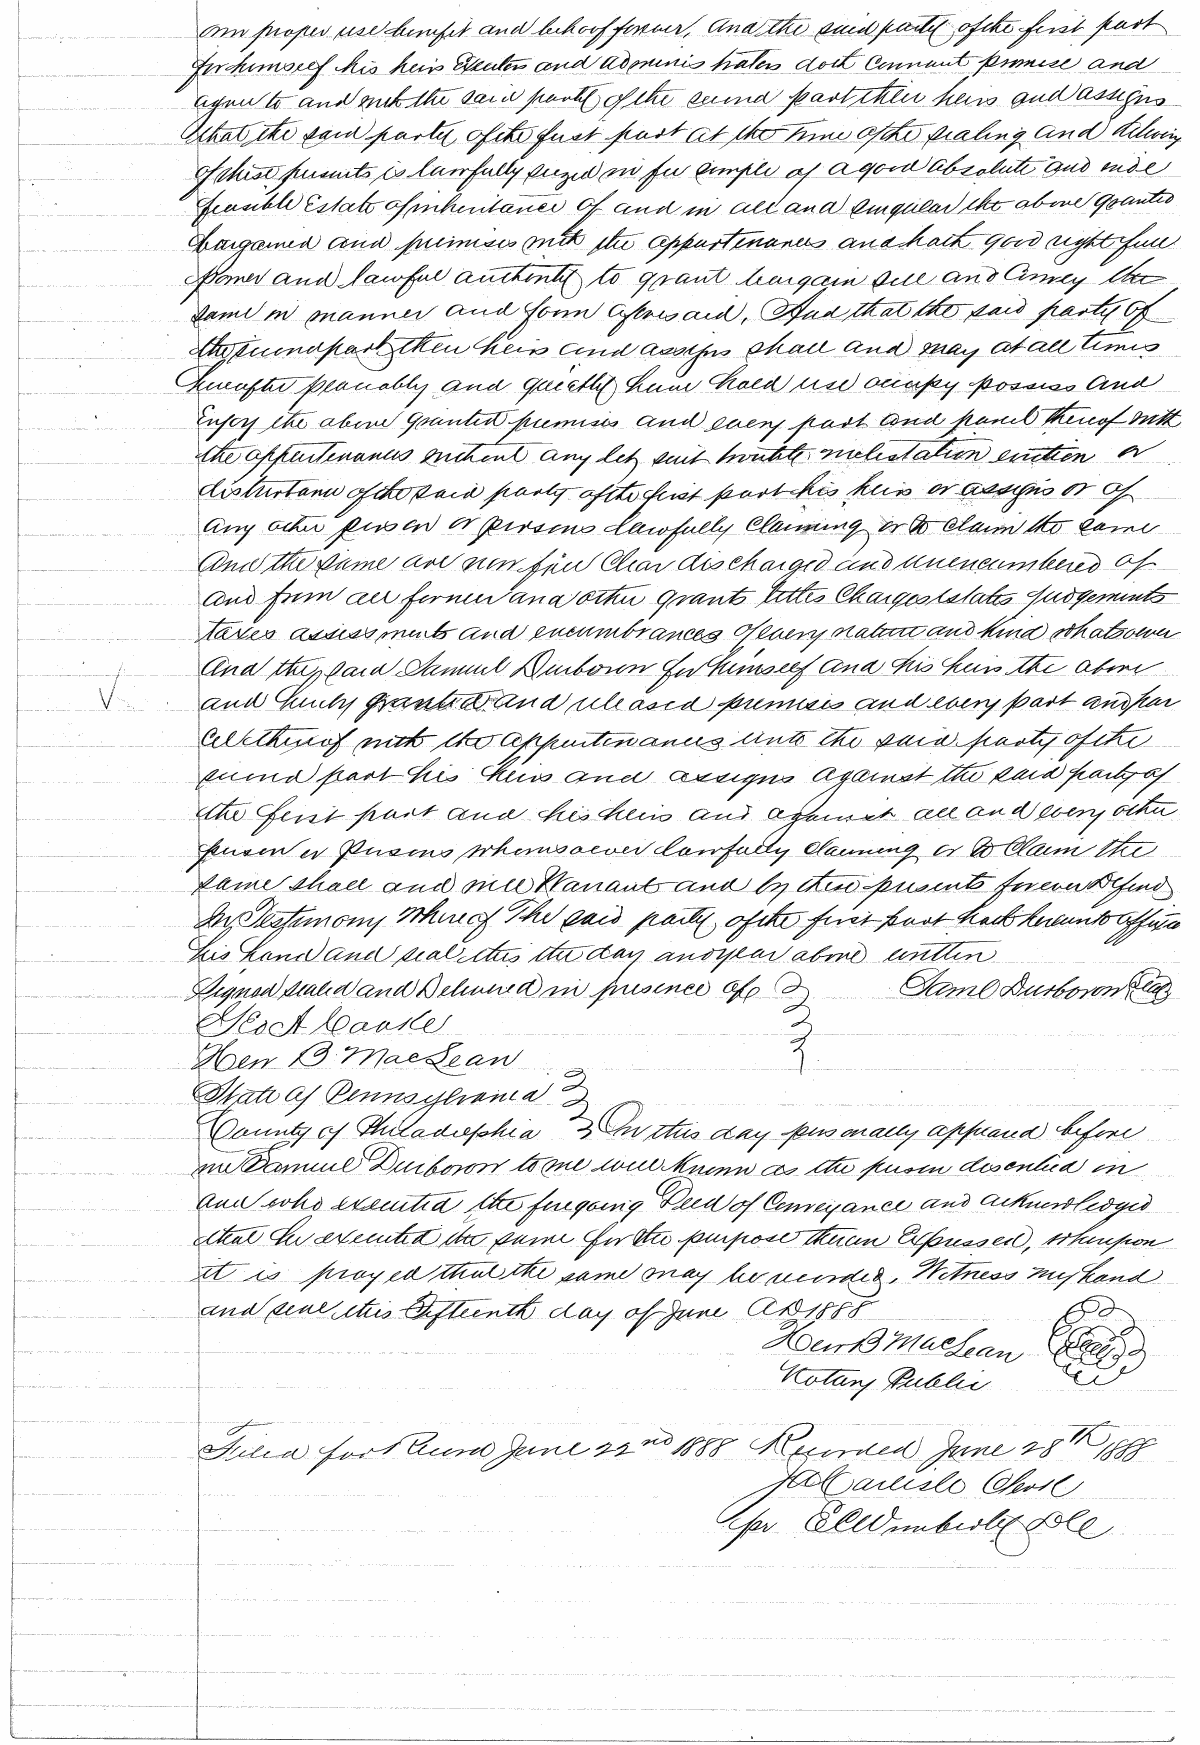 own proper use benefit and behoof forever, And the said party of the first part
for himself his heirs Executors and administrators doth covenant promise and
agree to and with the said party of the second part their heirs and assigns
that the said party of the first part at the time of the sealing and delivery
of these presents is lawfully seized in fee simple of a good absolute and inde
feasible Estate of inheritance of and in all and singular the above granted
bargained and premises with the appurtenances and hath good right full
power and lawful authority to grant bargain sell and Convey the
same in manner and form aforesaid, And that the said party of
the second part their heirs and assigns shall and may at all times
hereafter peaceably and quietly have hold use occupy possess and
enjoy the above granted premises and every part and parcel thereof with
the appurtenances without any let suit trouble molestation eviction or
disturbance of the said party of the first part his heirs or assigns or of
any other person or persons lawfully claiming or to claim the same
And the same are now free Clear discharged and unencumbered of
and from all former and other grants titles Charges Estates Judgements
taxes assessments and encumbrances of every nature and kind whatsoever
And the said Samuel Durborow for himself and his heirs the above
and hereby granted and released premises and every part and par
cell thereof with the appurtenances unto the said party of the
second part his heirs and assigns against the said party of
the first part and his heirs and against all and every other
person or persons whomsoever lawfully claiming or to Claim the
same shall and will Warrant and by these presents forever Defend
In Testimony Whereof The said party of the first part hath hereunto affixed
his hand and seal this the day and year above written
Signed sealed and Delivered in presence of Saml Durborow Seal
Hen B MacLean
State of Pennsylvania
County of Philadelphia On this day personally appeared before
me Samuel Durborow to me well known as the person described in
and who executed the foregoing Deed of Conveyance and acknowledged
that he executed the same for the purpose therein Expressed, whereupon
it is prayed that the same may be recorded. Witness my hand
and seal this Fifteenth day of June AD 1888
Hen B MacLean Seal
Notary Public
Filed for Record June 22nd 1888 Recorded June 28th 1888
Carlisle Clerk
per